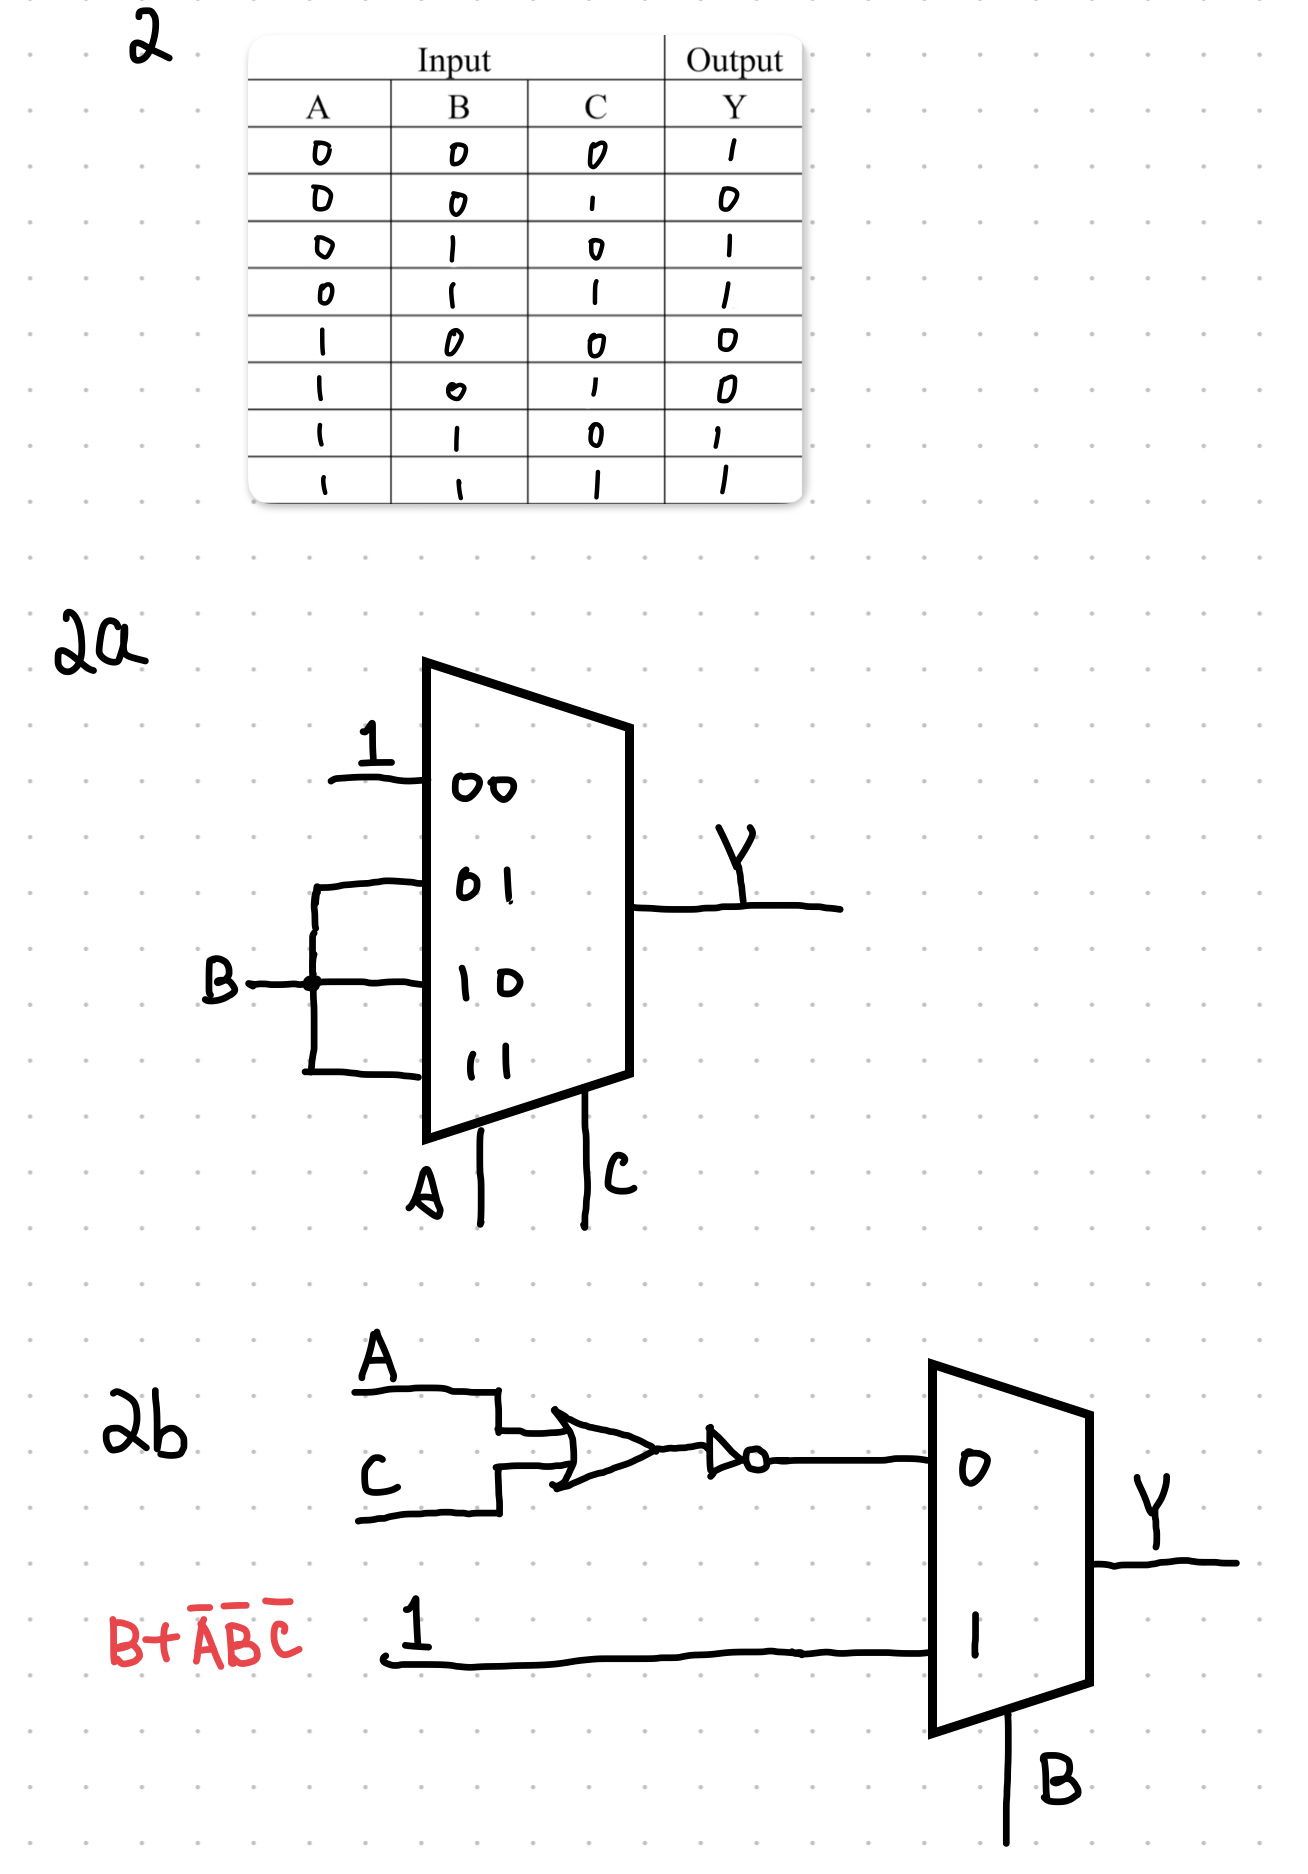 2
Input Output
A B C Y
0 0 0 1
0 0 1 0
0 1 0 1
0 1 1 1
1 0 0 0
1 0 1 0
1 1 0 1
1 1 1 1
2a
1
00
01
Y
B
10
11
A C
2b
A
C
0
Y
B+A̅B̅C̅
1
1
B